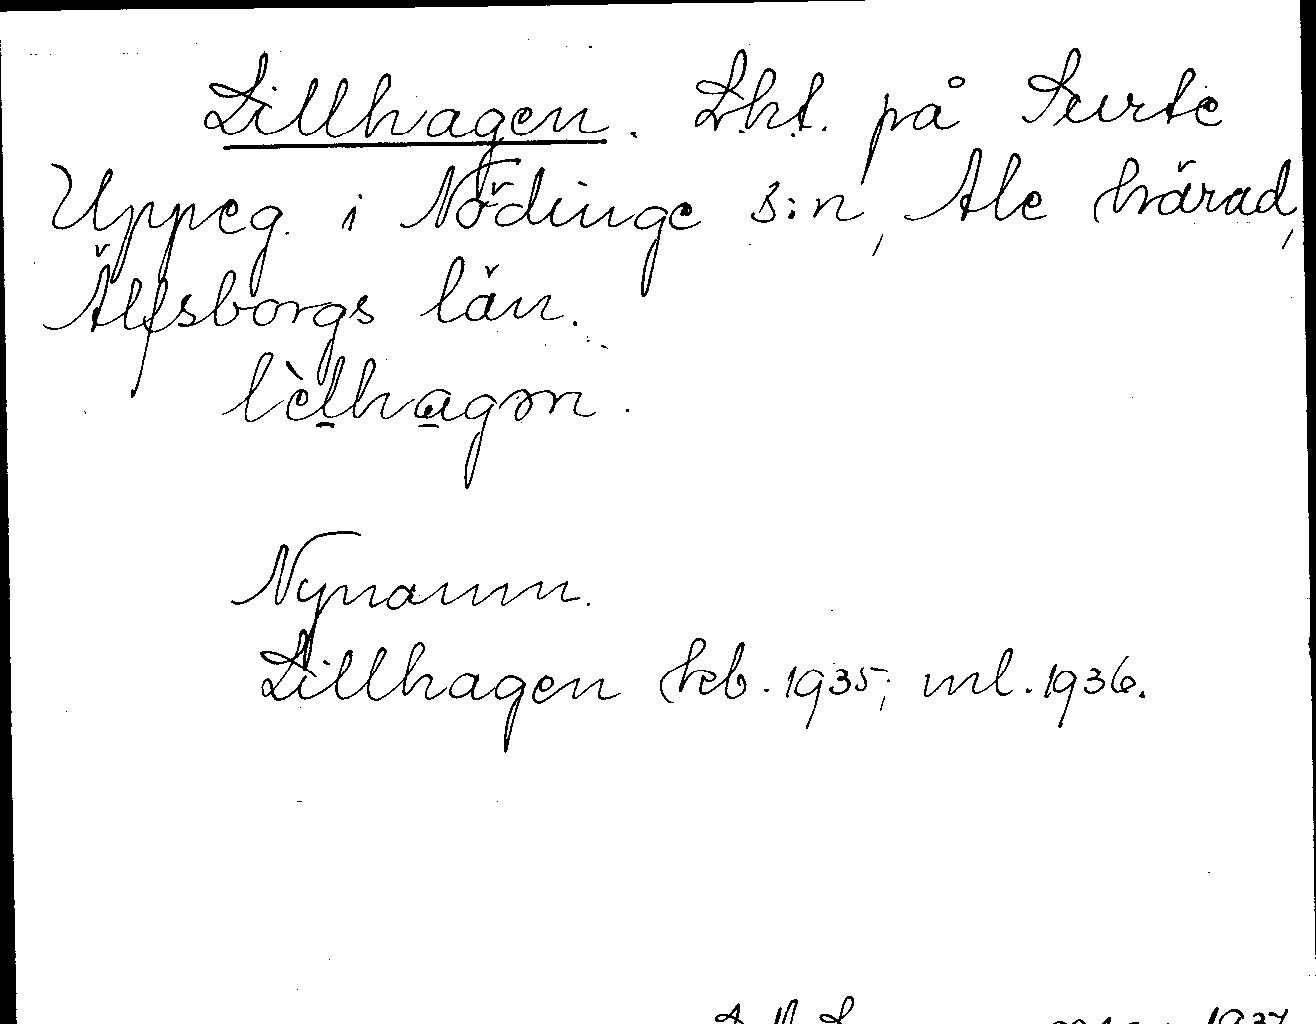 Lillhagen. Lht. på Surte
Uppeg. i Nödinge s:n, Ale härad,
Älfsborgs län.
lèlhagən.
Nynamn.
Lillhagen hcb. 1935; ml. 1936.
1937